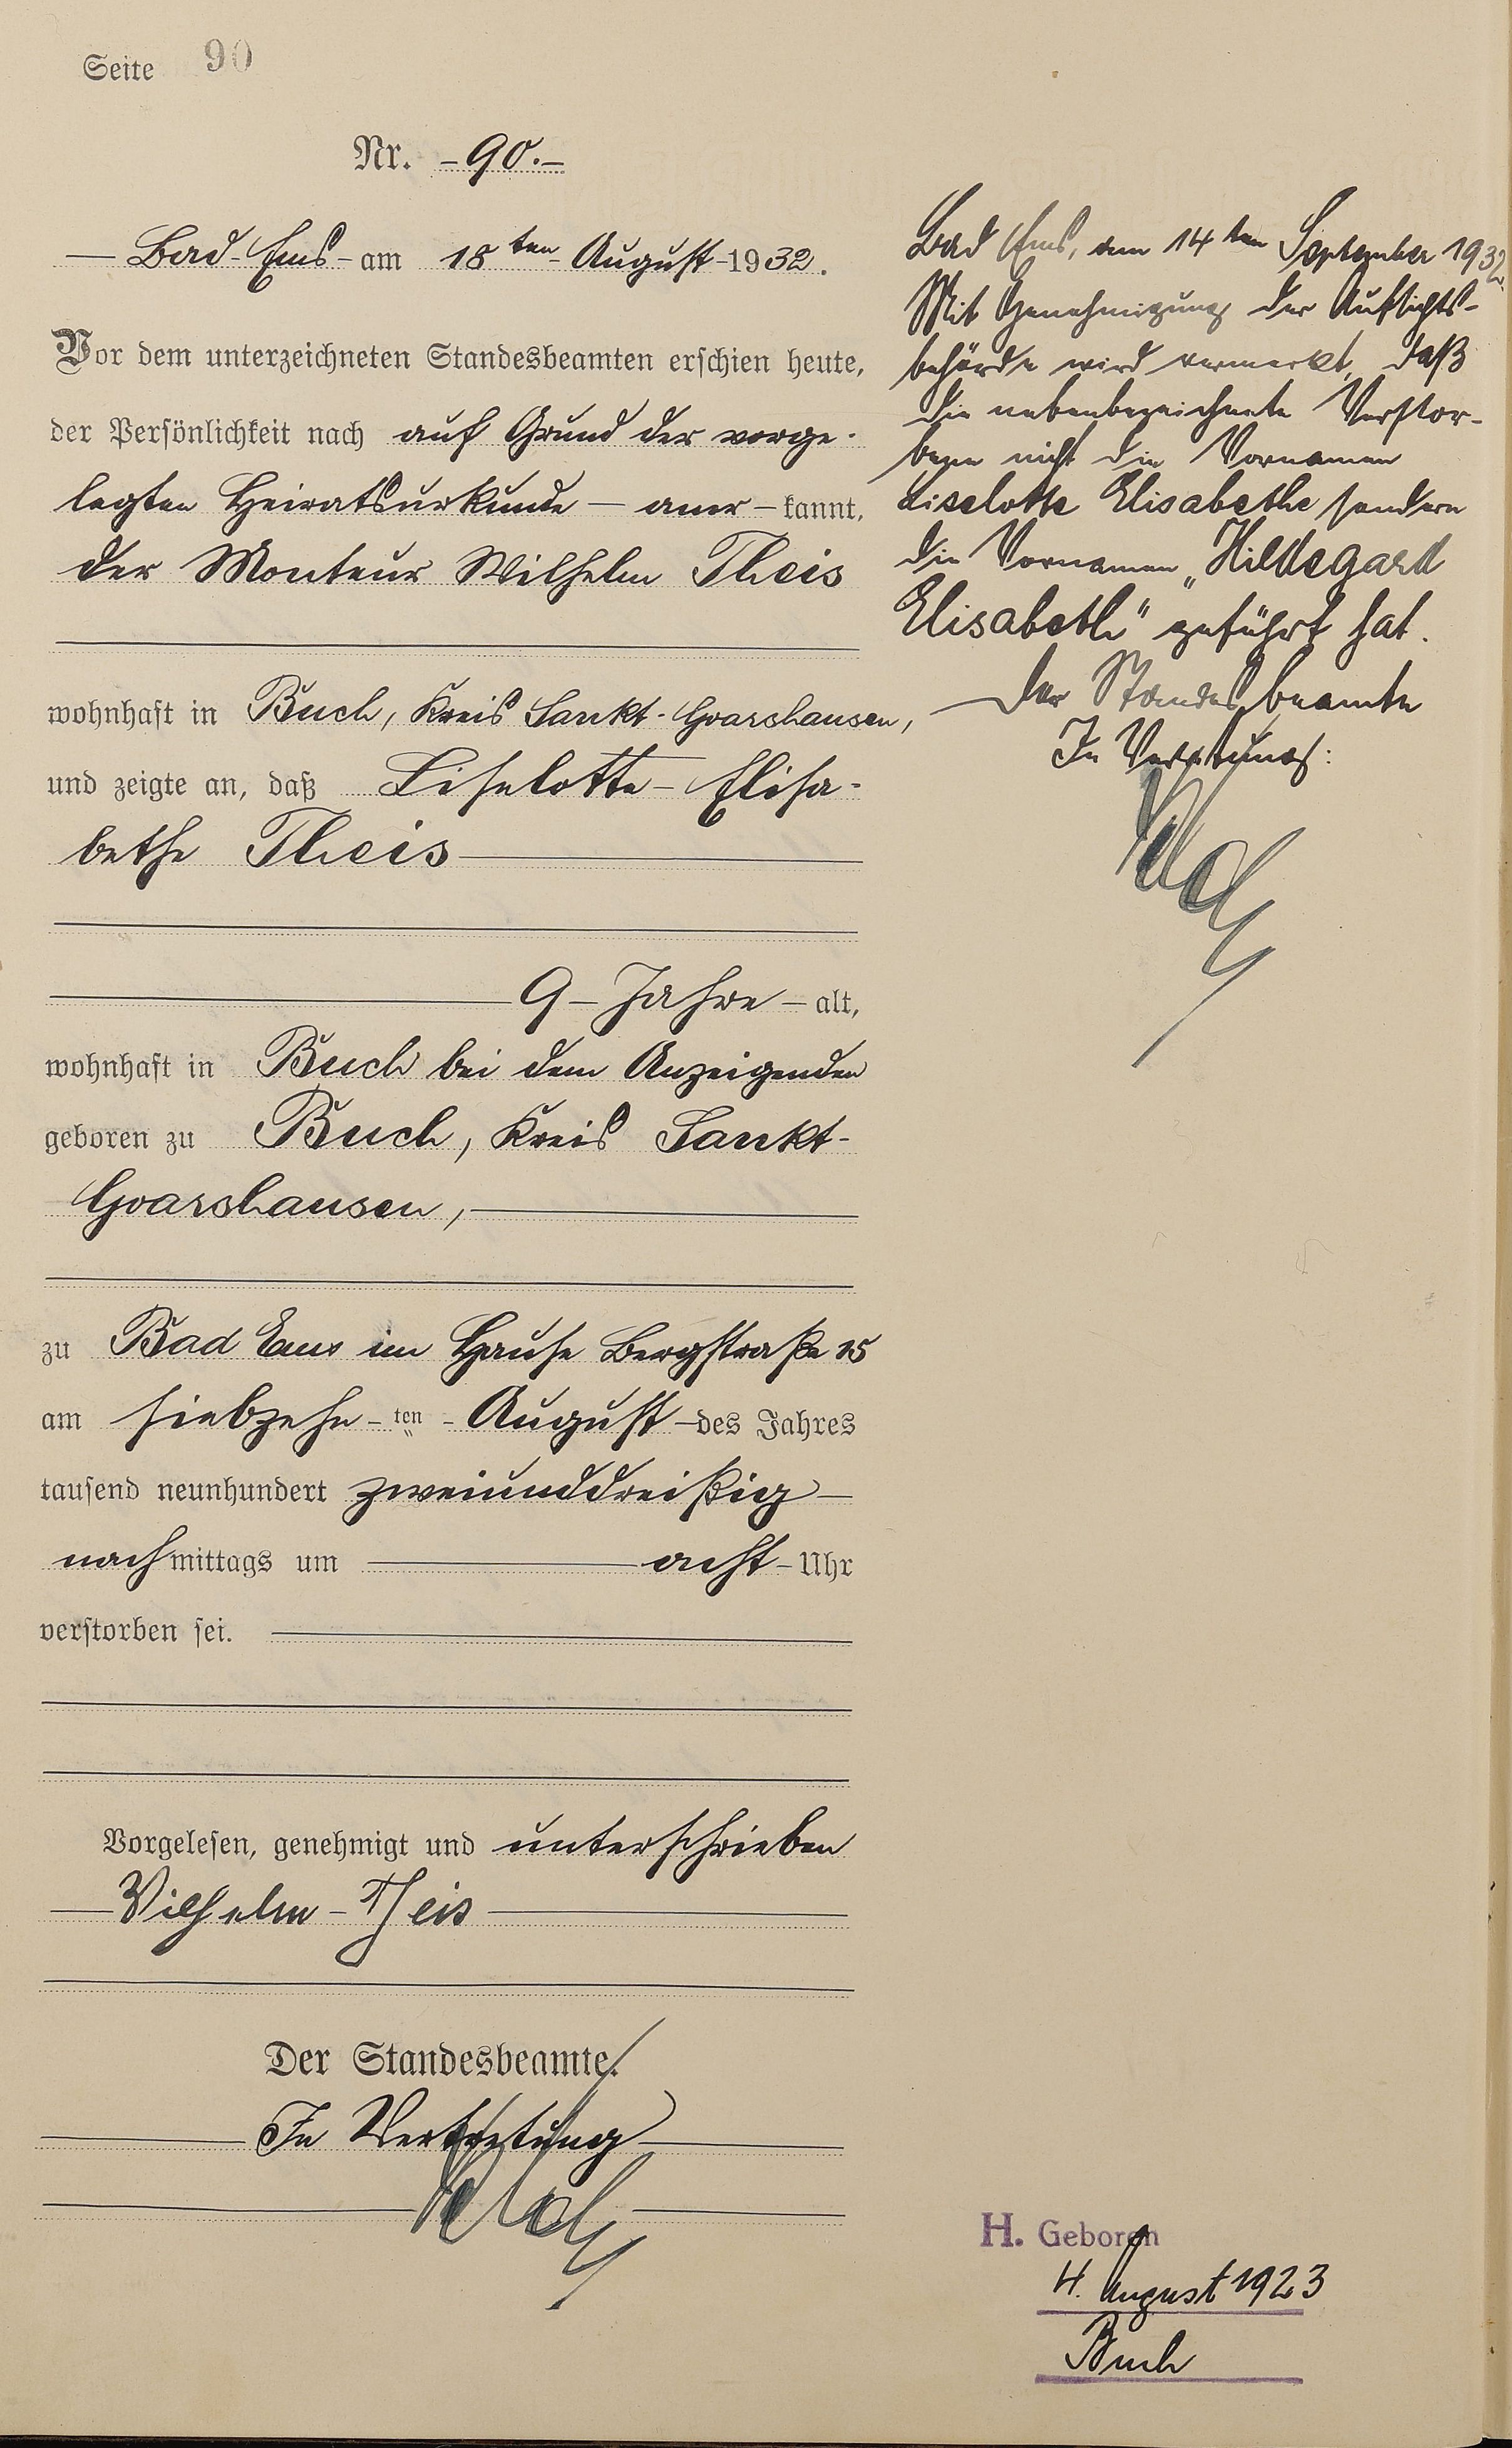 Seite 90
Nr. - 90. -
— Bad-Ems - am 18ten August 1932.
Vor dem unterzeichneten Standesbeamten erschien heute,
der Persönlichkeit nach auf Grund der vorge-
legten Heiratsurkunde — aner - kannt,
der Monteur Wilhelm Theis
wohnhaft in Buch, Kreis Sankt-Goarshausen,
und zeigte an, daß Liselotte - Elisa-
bethe Theis
9 - Jahre - alt,
wohnhaft in Buch bei dem Anzeigenden
geboren zu Buch, Kreis Sankt-
Goarshausen,
zu Bad Ems im Hause Bergstraße 15
am siebzehn - ten - August - des Jahres
tausend neunhundert zweiunddreißig —
nachmittags um — acht - Uhr
verstorben sei.
Vorgelesen, genehmigt und unterschrieben
— Wilhelm - Theis —
Der Standesbeamte.
In Vertretung
Bad Ems, den 14ten September 1932.
Mit Genehmigung der Aufsichts-
behörde wird vermerkt, daß
die nebenbezeichnete Verstor-
bene nicht die Vornamen
Liselotte Elisabethe sondern
die Vornamen „Hildegard
Elisabeth" geführt hat.
Der Standesbeamte
In Vertretung:
H. Geboren
4. August 1923
Buch